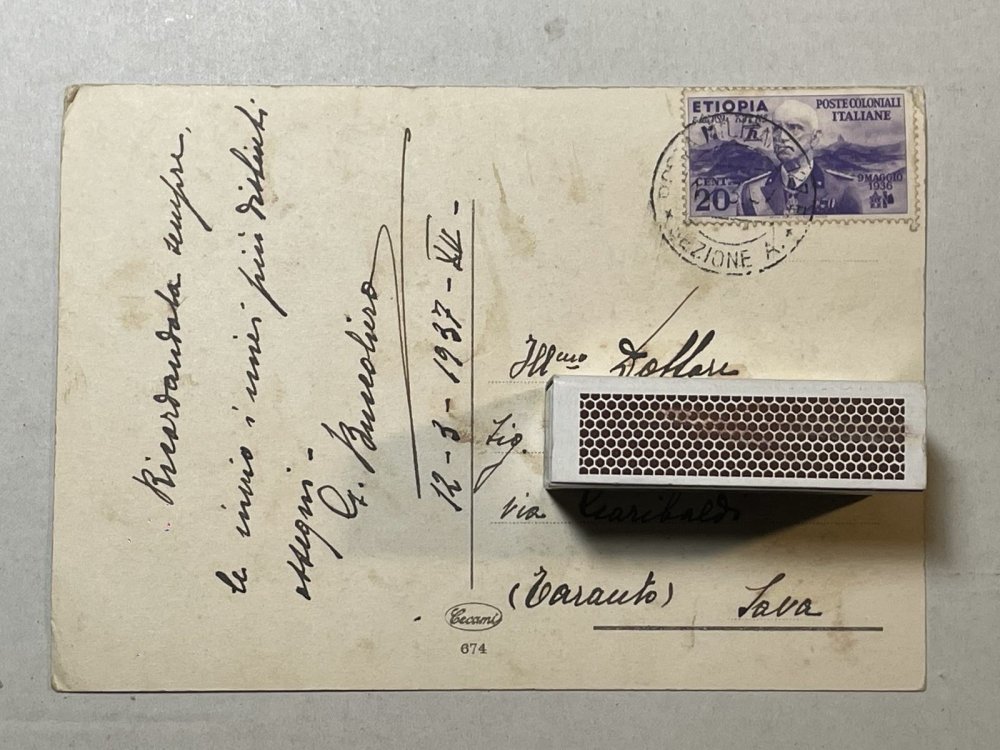 Ricordandola sempre,
le invio i miei più distinti
ossequi -
G.
12-3-1937-XV-
ETIOPIA
POSTE COLONIALI
ITALIANE
CENT.
20
9 MAGGIO
1936
SEZIONE A.
Ill.mo Dottore
Sig.
via Garibaldi
(Taranto) Sava
Cecami
674